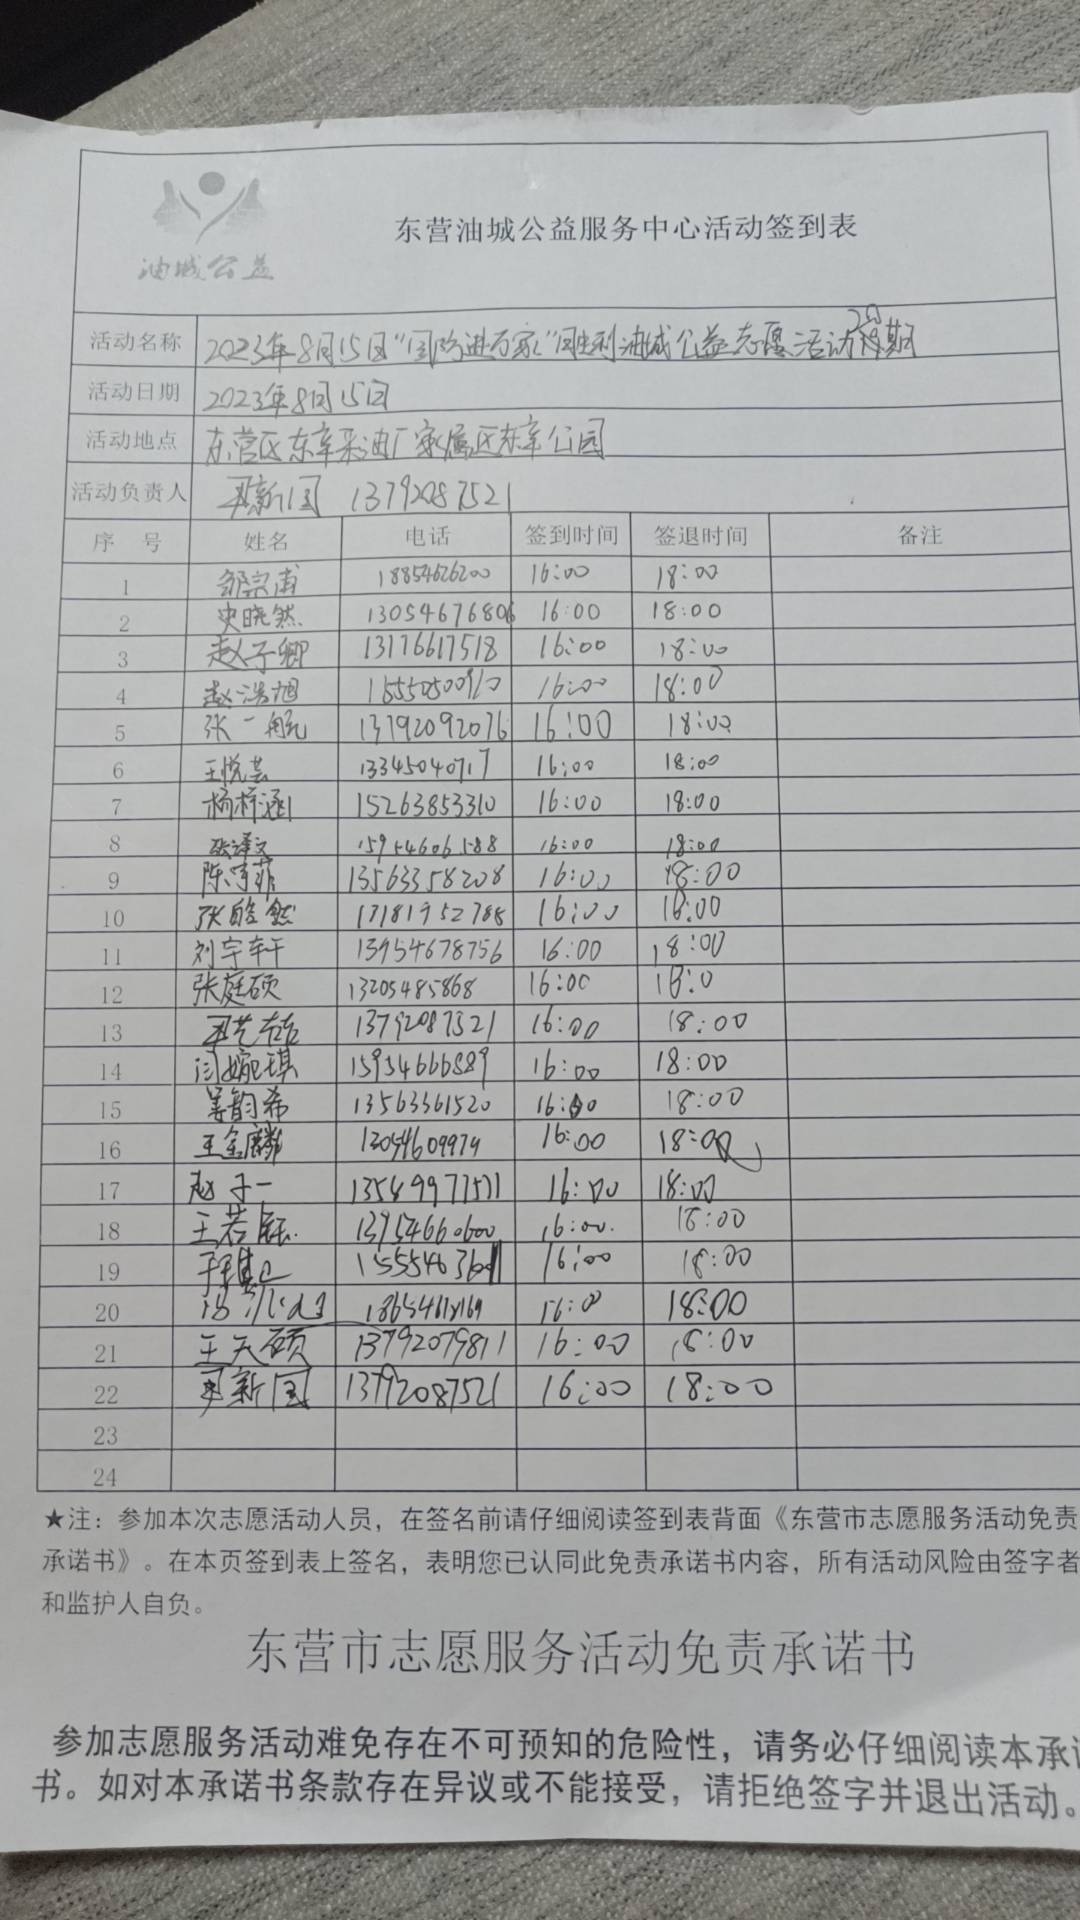 油城公益
东营油城公益服务中心活动签到表
活动名称 2023年8月15日“国防进万家”胜利油城公益志愿活动 期
活动日期 2023年8月15日
活动地点 东营区东辛采油厂家属区东辛公园
活动负责人 新国 13792087521
序 号 姓名 电话 签到时间 签退时间 备注
1 邹宗甫 18854626200 16:00 18:00
2 史晓然 13054676806 16:00 18:00
3 赵子卿 13176617518 16:00 18:00
4 赵浩旭 16:00 18:00
5 张一航 13792092076 16:00 18:00
6 王悦芸 13345040717 16:00 18:00
7 杨梓涵 15263853310 16:00 18:00
8 张译文 15954606588 16:00 18:00
9 陈 菲 13563358208 16:00 18:00
10 张皓然 17181952788 16:00 18:00
11 刘宇轩 13954678756 16:00 18:00
12 张庭硕 13205485868 16:00 18:0
13 13792087521 16:00 18:00
14 闫婉琪 15954666589 16:00 18:00
15 姜韵希 13563361520 16:00 18:00
16 王金麟 13054609979 16:00 18:00
17 赵子一 13589977511 16:00 18:00
18 王若钰 13954660600 16:00 18:00
19 16:00 18:00
20 16:0 18:00
21 王天硕 13792079811 16:00 18:00
22 新国 13792087521 16:00 18:00
23
24
★注：参加本次志愿活动人员，在签名前请仔细阅读签到表背面《东营市志愿服务活动免责
承诺书》。在本页签到表上签名，表明您已认同此免责承诺书内容，所有活动风险由签字者
和监护人自负。
东营市志愿服务活动免责承诺书
参加志愿服务活动难免存在不可预知的危险性，请务必仔细阅读本承诺
书。如对本承诺书条款存在异议或不能接受，请拒绝签字并退出活动。